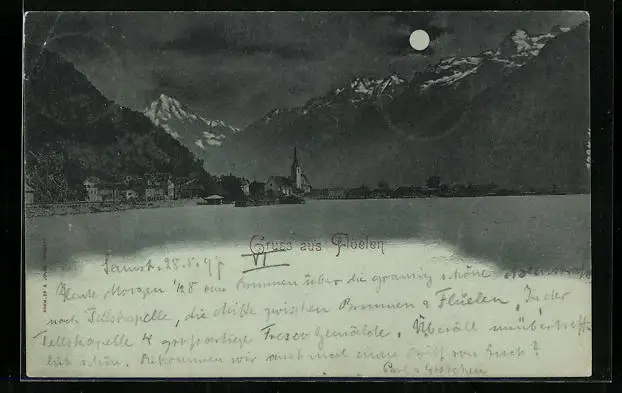 Gruss aus Flüelen
VI
Samst. 28.8.97
Heute Morgen 1/28 von Brunnen über die grausig schöne Axenstraße
nach Tellskapelle, die Mitte zwischen Brunnen & Flüelen. In der
Tellskapelle 4 großartige Fresco Gemälde. Überall unübertreff-
lich schön. Bekommen wir auch mal einen Brief von Euch?
Paul & Gretchen